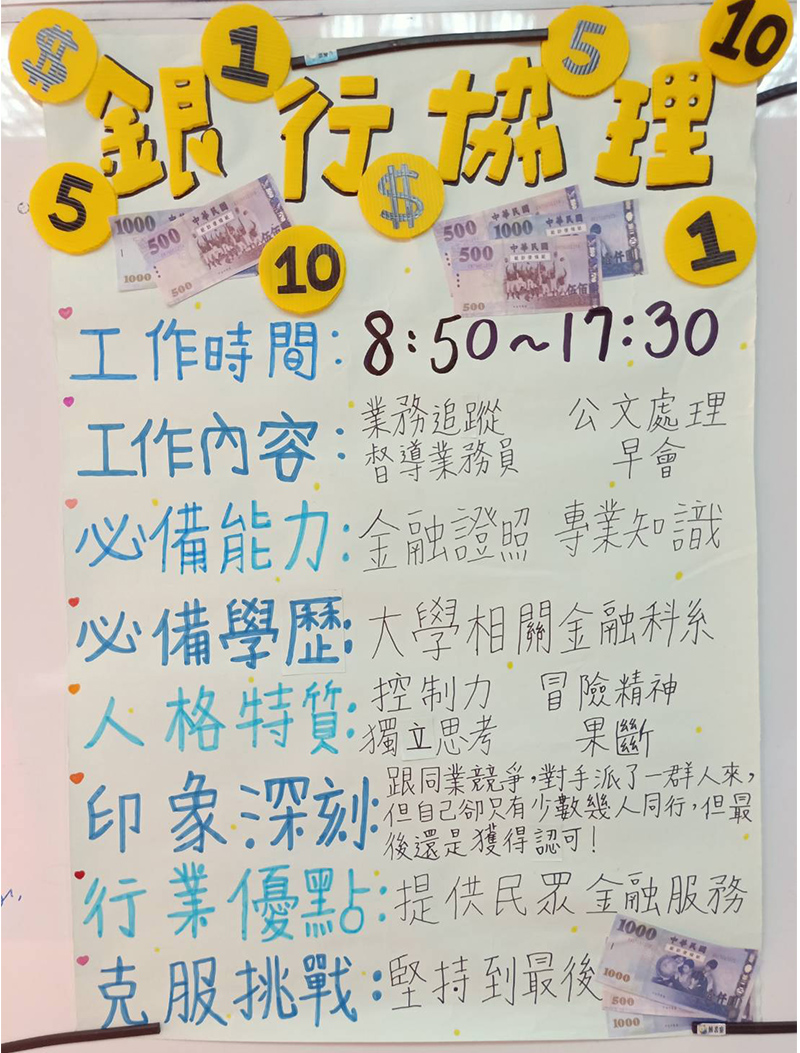 $
1
5
10
銀行協理
5
$
1
10
1000
中華民國
500
1000
500
中華民國
500
1000
中華民國
500
500
伍佰
工作時間：8:50~17:30
工作內容：業務追蹤 公文處理
督導業務員 早會
必備能力：金融證照 專業知識
必備學歷：大學相關金融科系
人格特質：控制力 冒險精神
獨立思考 果斷
印象深刻：跟同業競爭，對手派了一群人來，
但自己卻只有少數幾人同行，但最
後還是獲得認可！
行業優點：提供民眾金融服務
克服挑戰：堅持到最後
1000
中華民國
1000
500
1000